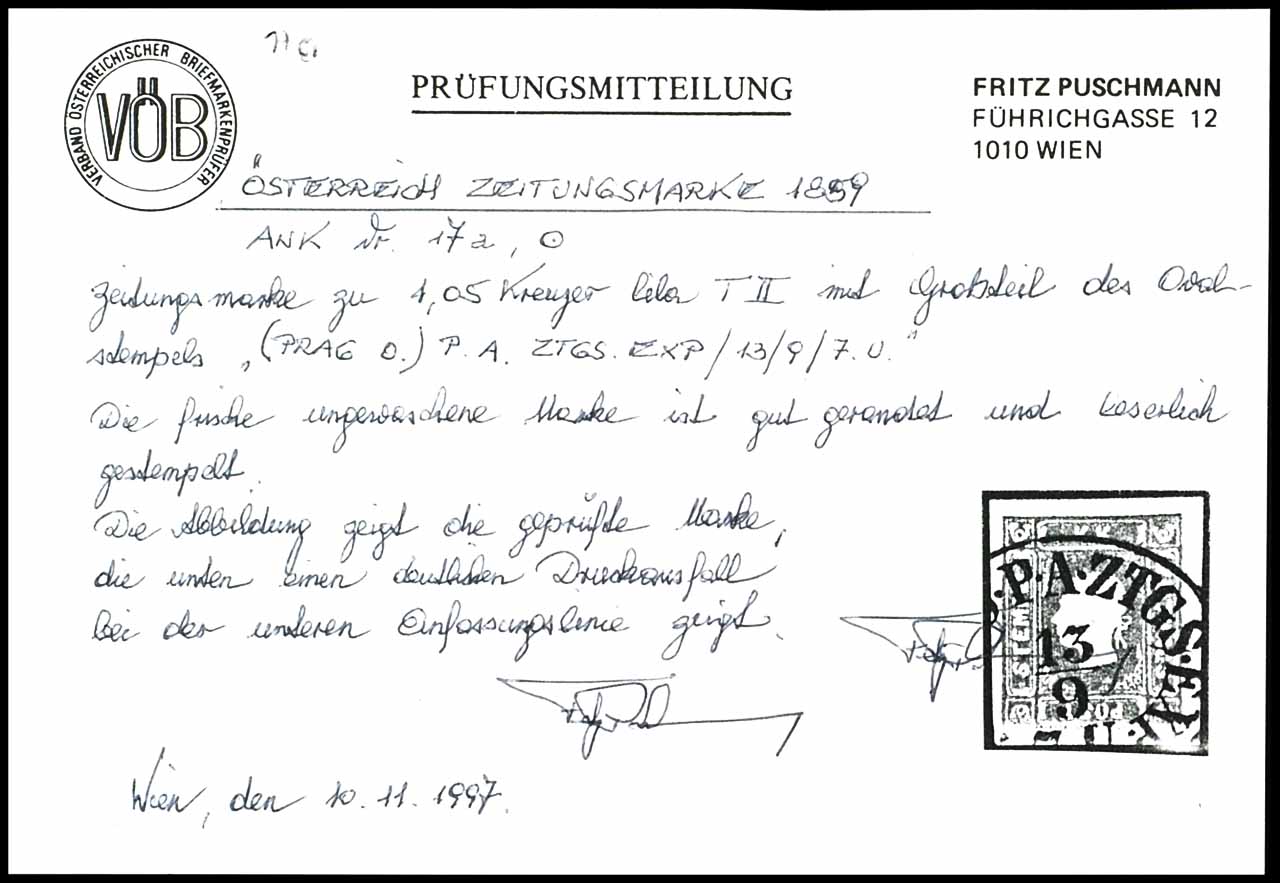 17a
VERBAND ÖSTERREICHISCHER BRIEFMARKENPRÜFER
VÖB
PRÜFUNGSMITTEILUNG
FRITZ PUSCHMANN
FÜHRICHGASSE 12
1010 WIEN
ÖSTERREICH ZEITUNGSMARKE 1859
ANK Nr. 17a, ⊙
Zeitungsmarke zu 1,05 Kreuzer lila T II mit Großteil des Oval-
stempels „(PRAG O.) P. A. ZTGS. EXP / 13/9/7. U."
Die frische ungewaschene Marke ist gut gerandet und leserlich
gestempelt.
Die Abbildung zeigt die geprüfte Marke,
die unten einen deutlichen Druckausfall
bei der unteren Einfassungslinie zeigt.
P.A.ZTGS.EX
13
9
7.U.
Wien, den 10.11.1997.